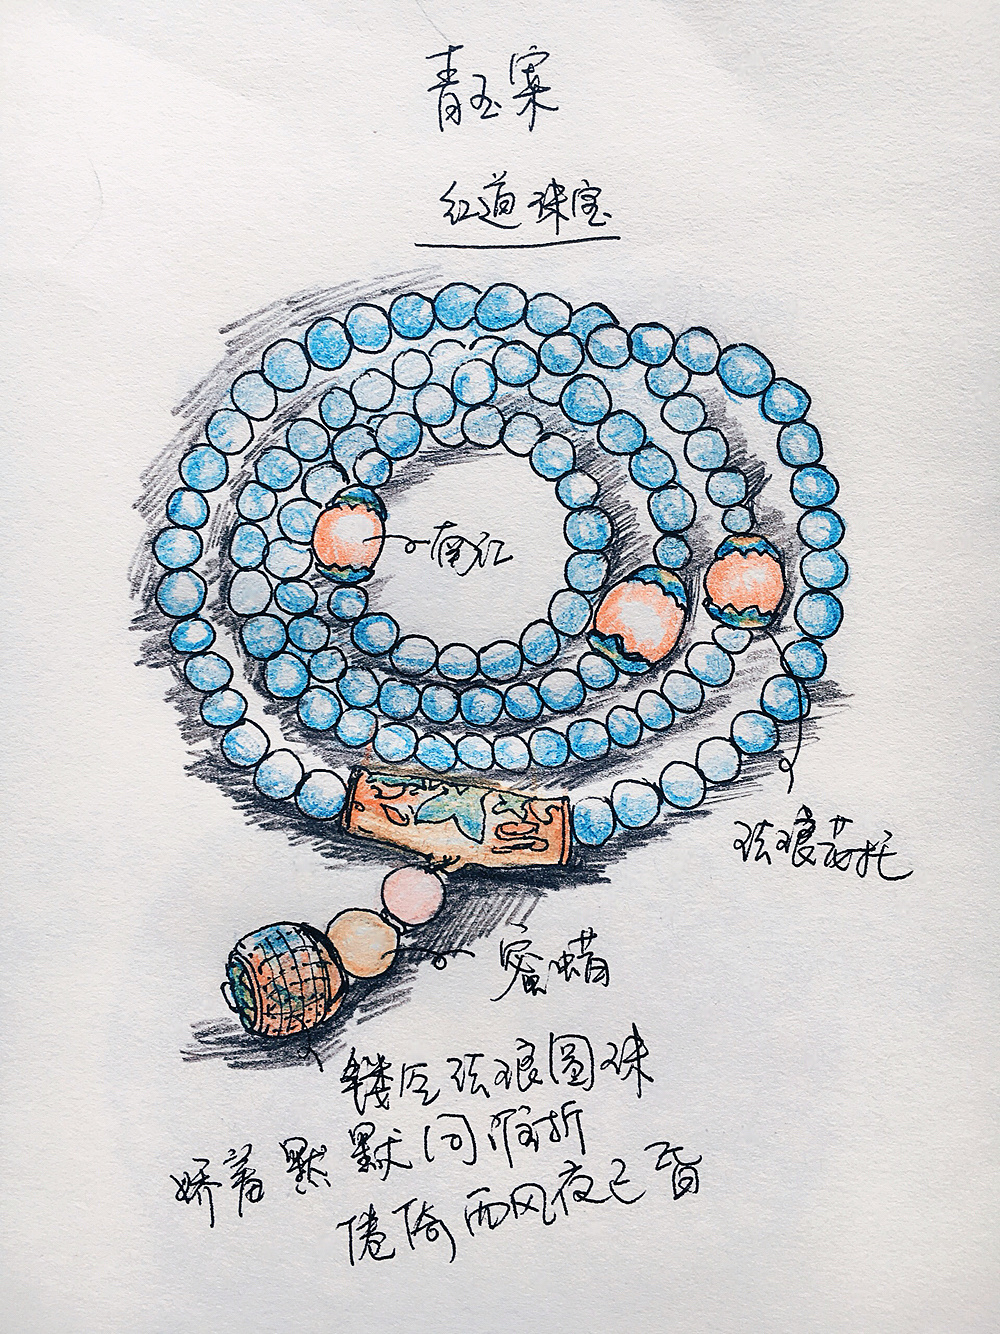 青玉案
红道珠宝
南红
珐琅花托
蜜蜡
镂空珐琅圆珠
娇羞默默同谁诉
倦倚西风夜已昏